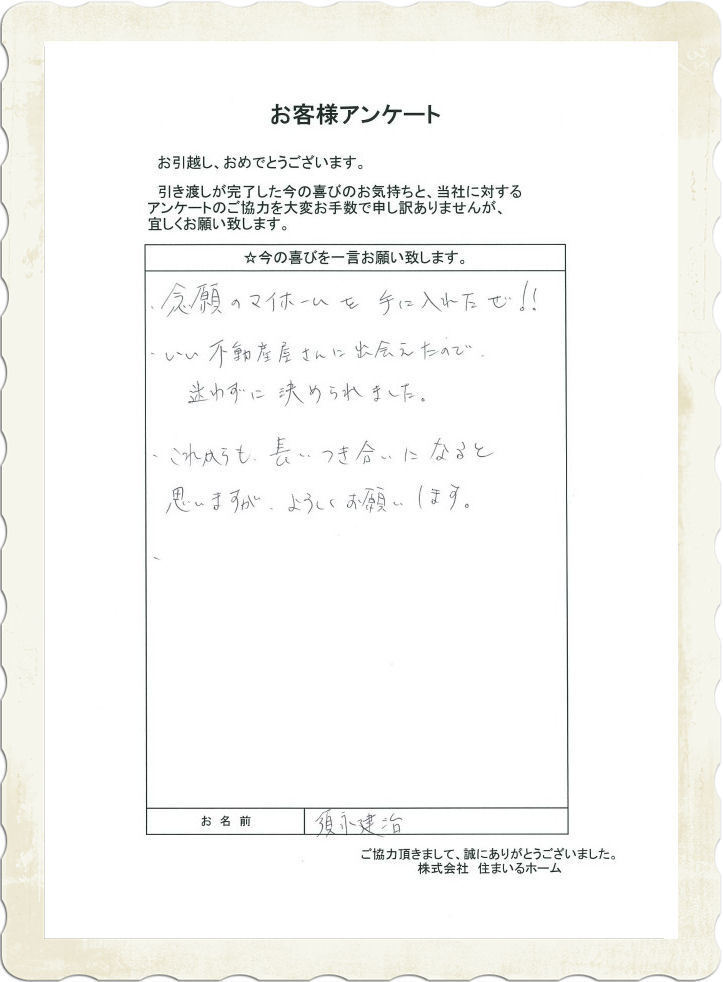 お客様アンケート
お引越し、おめでとうございます。
引き渡しが完了した今の喜びのお気持ちと、当社に対する
アンケートのご協力を大変お手数で申し訳ありませんが、
宜しくお願い致します。
☆今の喜びを一言お願い致します。
・念願のマイホームを手に入れたぜ!!
・いい不動産屋さんに出会えたので、
迷わずに決められました。
・これからも、長いつき合いになると
思いますが、よろしくお願いします。
・
お名前
須永建治
ご協力頂きまして、誠にありがとうございました。
株式会社 住まいるホーム